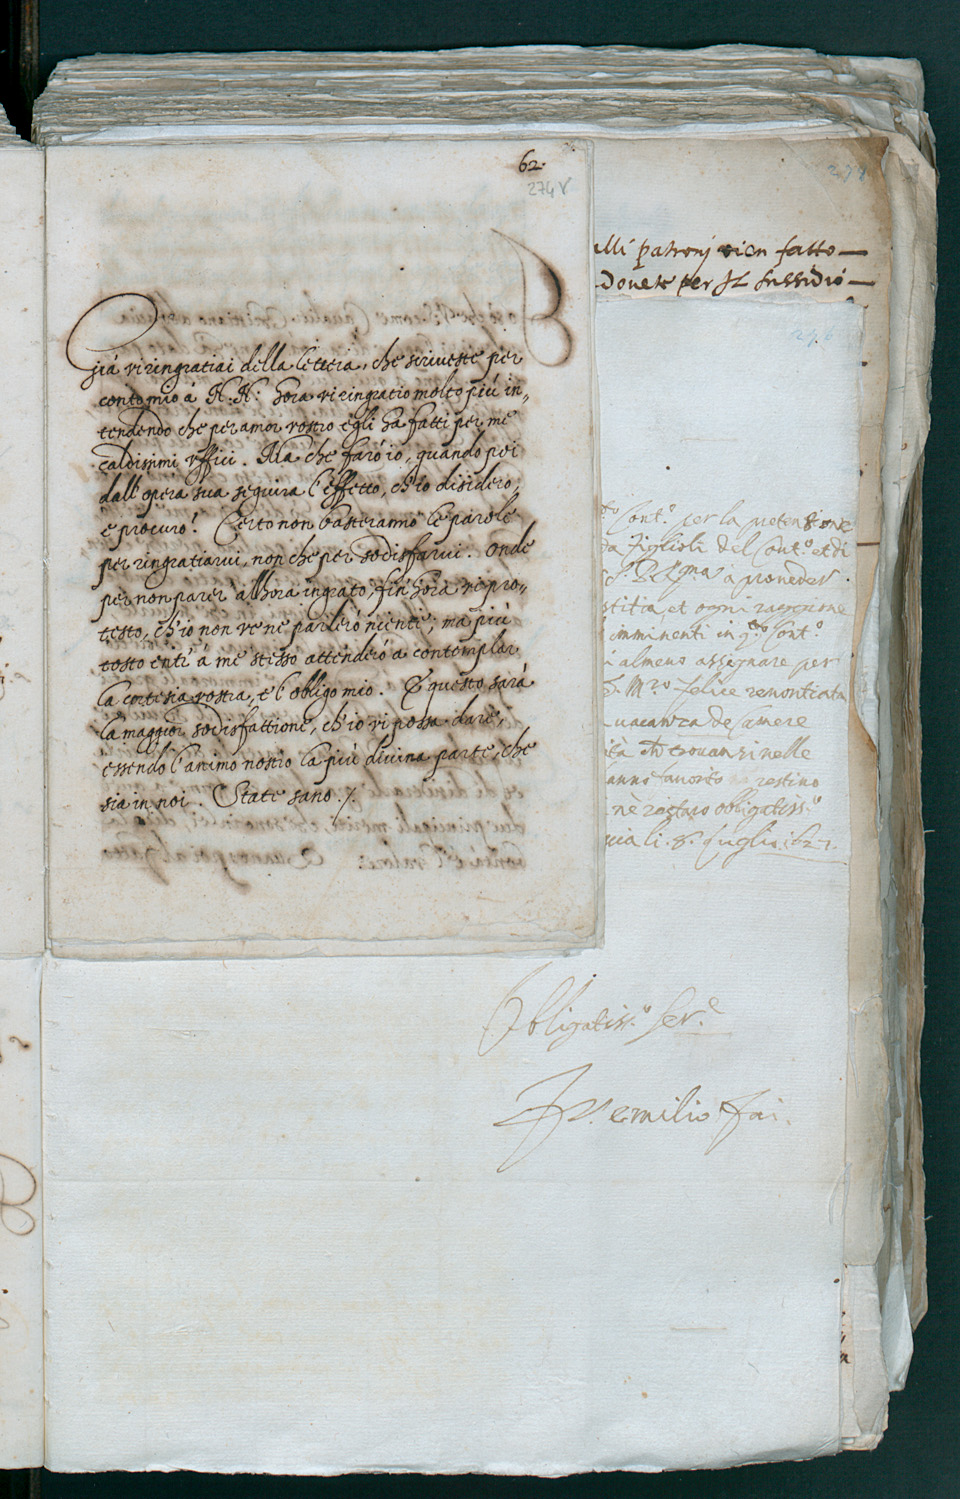 62.
274 V
già vi ringratiai della lettera, che scriveste per
conto mio à N. N: hora vi ringratio molto più in,,
tendendo che per amor vostro egli ha fatti per me
caldissimi uffici. Ma che farò io, quando poi
dall'opera sua seguirà l'effetto, ch'io disidero,
e procuro? Certo non basteranno le parole
per ringratiarvi, non che per sodisfarvi. Onde
per non parer allhora ingrato, fin hora vi pro,,
testo, ch'io non ve ne parlerò niente; ma più
tosto entr'à me stesso attenderò a contemplar
la cortesia vostra, e l'obligo mio. E questo sarà
la maggior sodisfattione, ch'io vi possa dare,
essendo l'animo nostro la più divina parte, che
sia in noi. State sano ./.
278
alli patronj vien fatto
Dovete per Il sussidio
276
Cont.º per la pretensione
figlioli del Cont.º et di
à proveder
stitia et ogni ragione
imminenti in q.to Cont.º
almeno assegnare per
Mro felice renontiata
vacanza de Camere
trovansi nelle
favorito restino
nè restaro obligatiss.º
li. 8. luglio. 1627.
Obligatiss.º Ser.e
emilio fai.